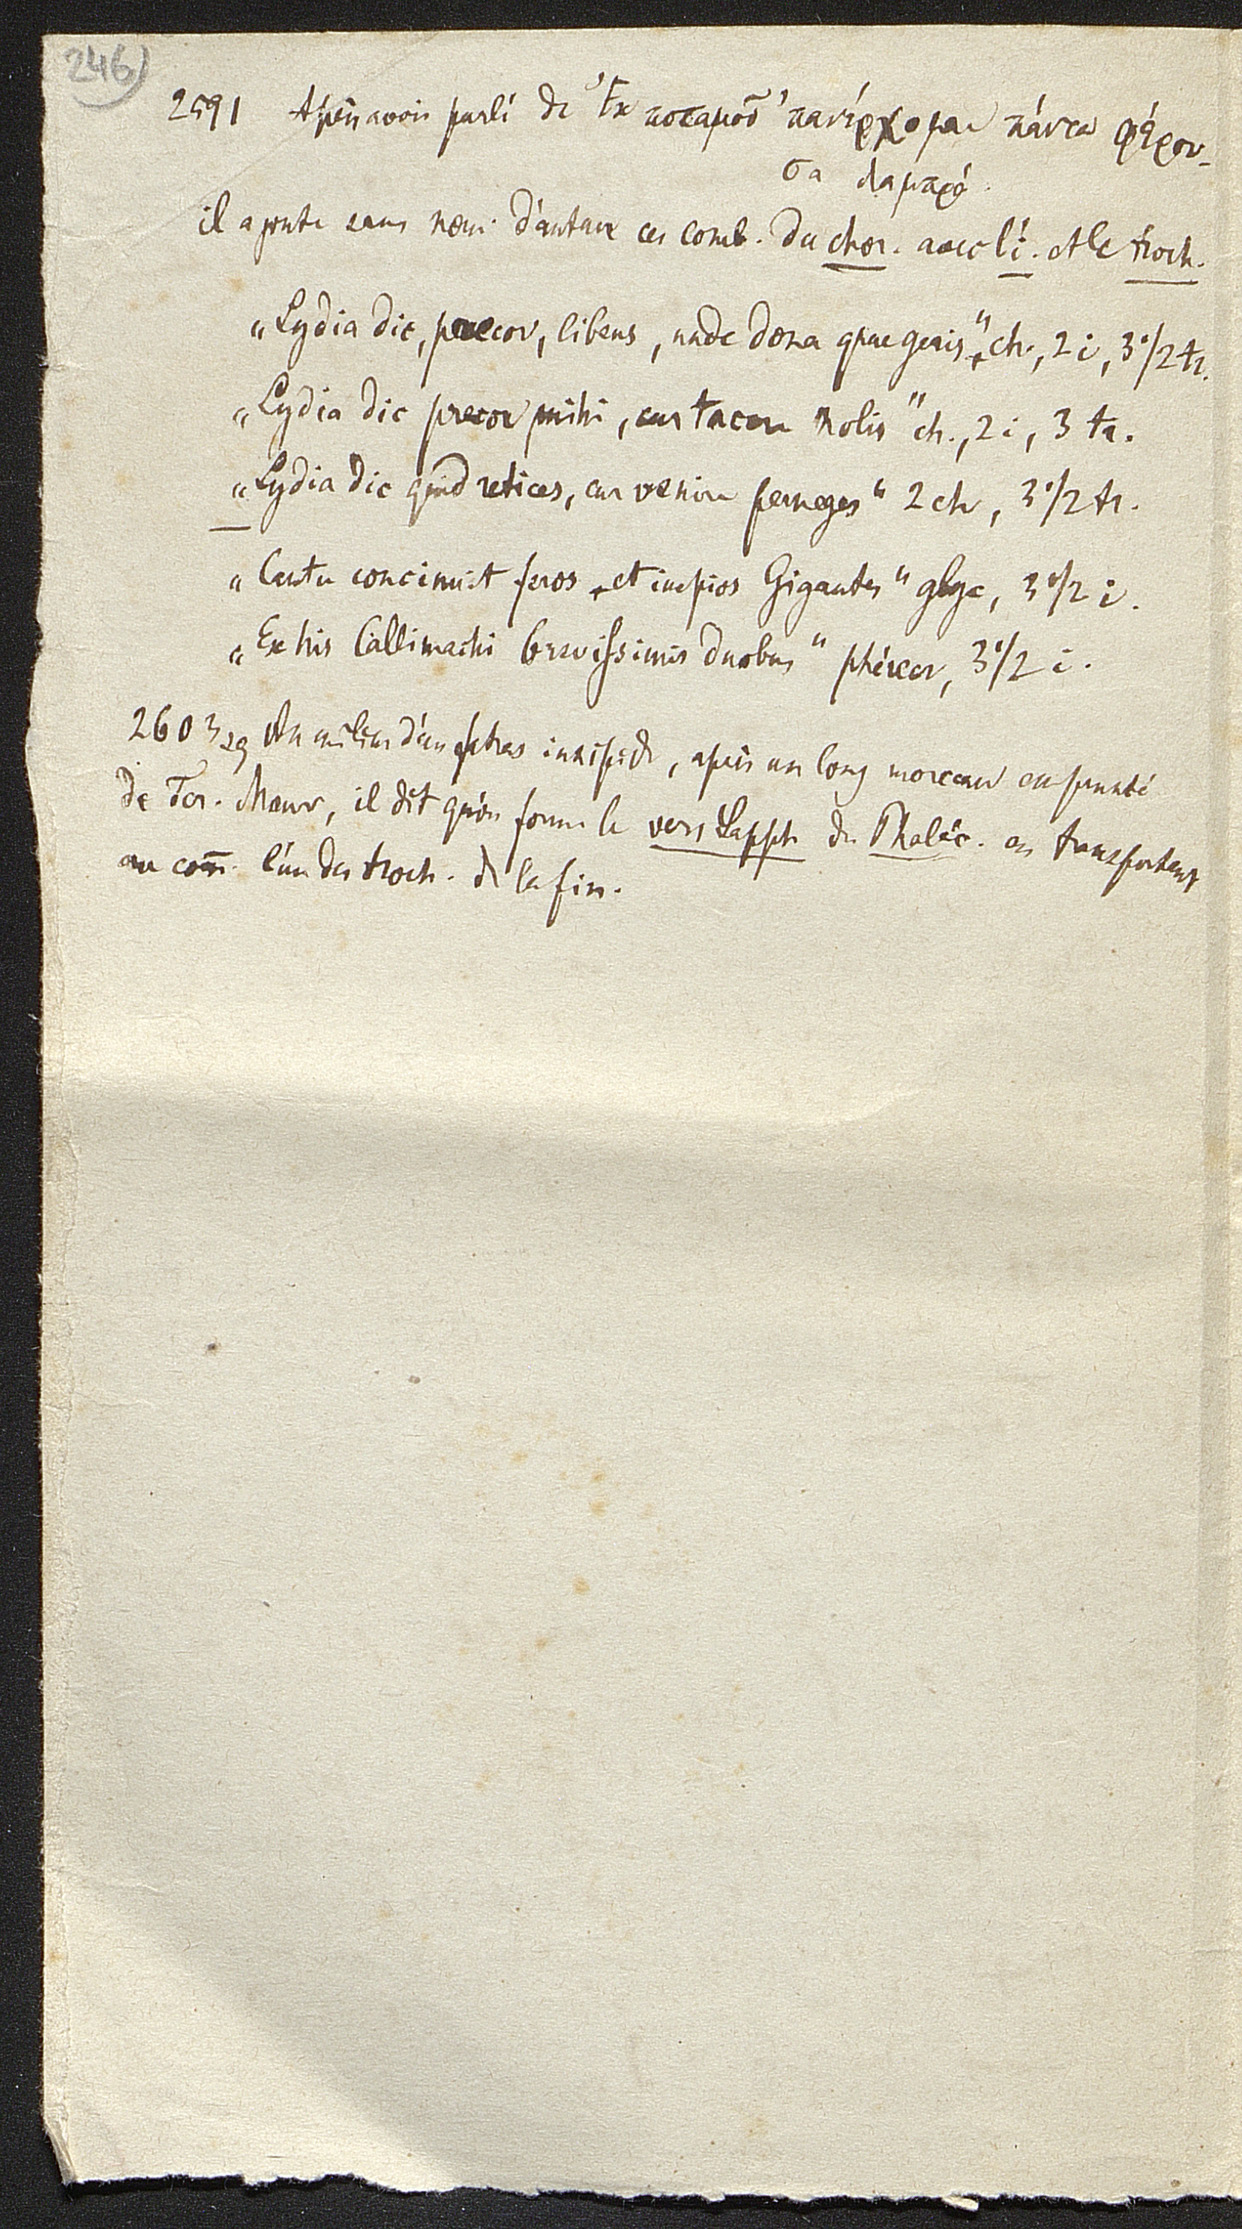 246)
2591 Après avoir parlé de "Ἐκ ποταμοῦ 'πανέρχομαι πάντα φέρου-
σα λαμπρά.
il ajoute sans nom d'auteur ces comb. du chor. avec l'i. et le troch.
„Lydia dic, precor, libens, unde dona quae geris", ch., 2 i, 3 1/2 tr.
„Lydia dic precor mihi, cur tacere nolis" ch., 2 i, 3 tr.
„Lydia dic quid retices, cur venire perneges" 2 ch, 3 1/2 tr.
„Cantu concinuit feros et impios Gigantes" glyc, 3 1/2 i.
„Ex his Callimachi brevissimis duobus" phérécr, 3 1/2 i.
2603,29 Au milieu d'un fatras insipide, après un long morceau emprunté
de Ter. Maur, il dit qu'on forme le vers Sapph du Phaléc. en transportant
au com̄. l'un des troch. de la fin.